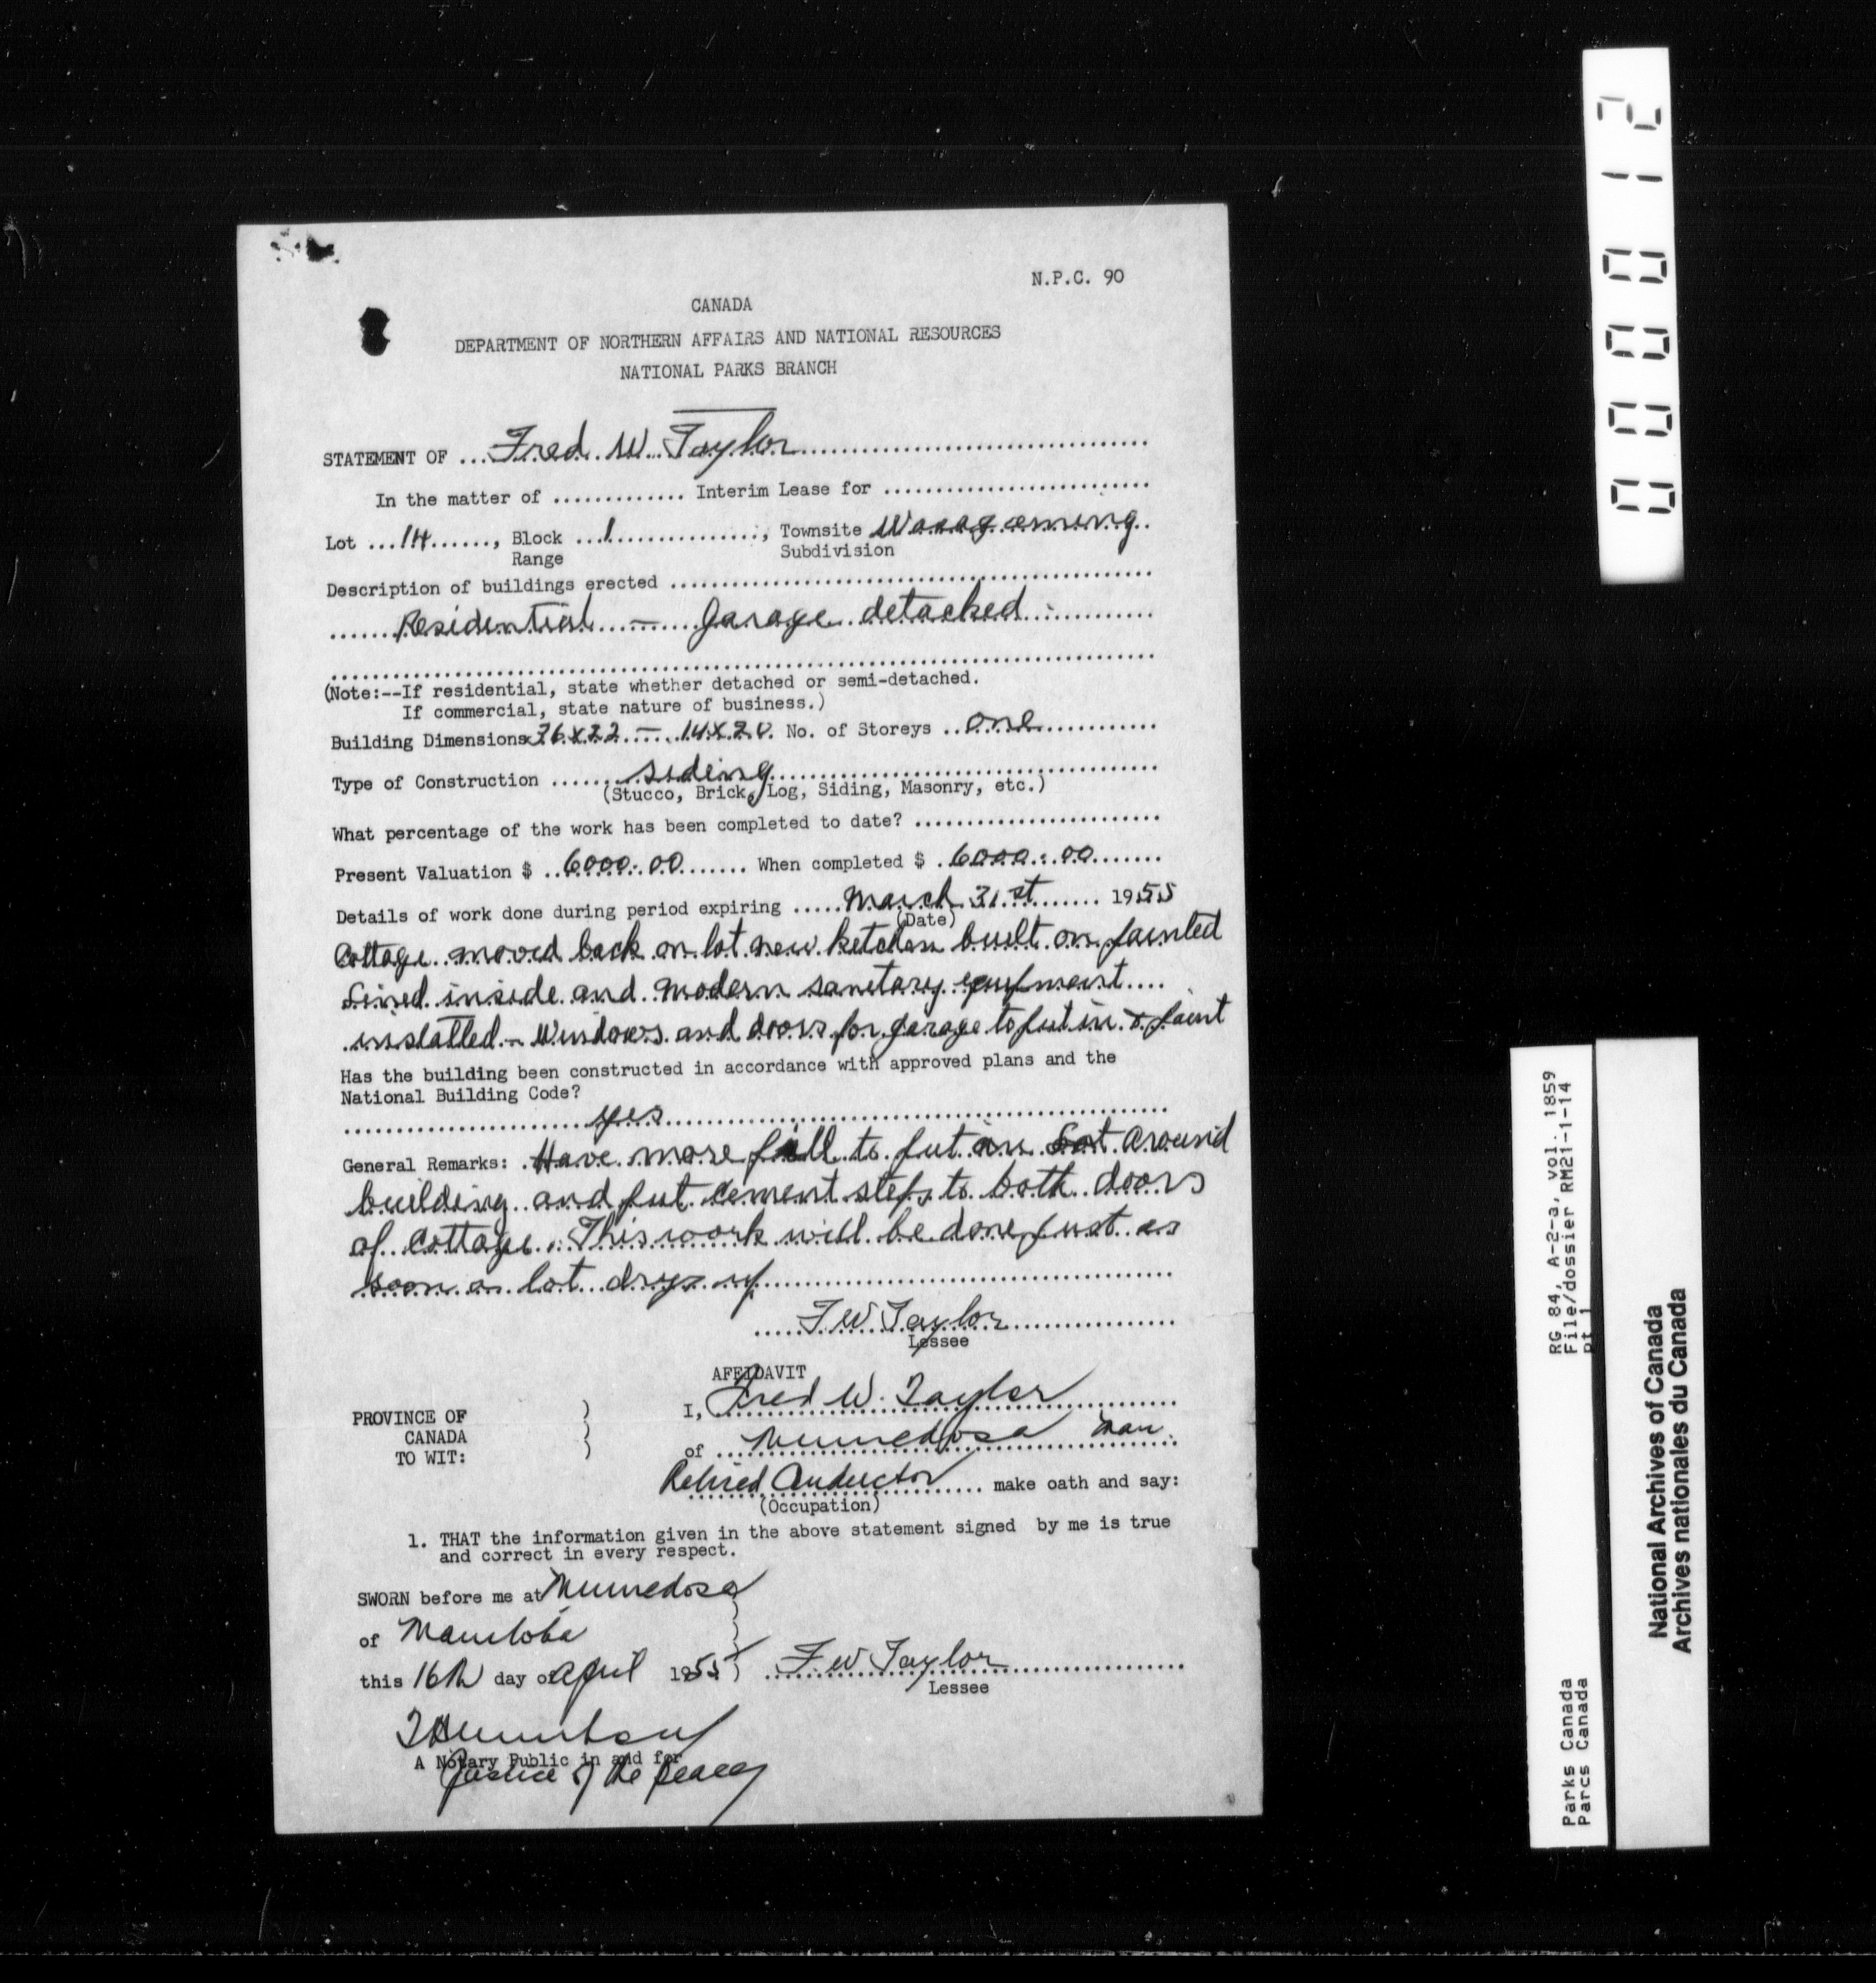 N.P.C. 90
CANADA
DEPARTMENT OF NORTHERN AFFAIRS AND NATIONAL RESOURCES
NATIONAL PARKS BRANCH
STATEMENT OF ... Fred. W. Taylor
In the matter of ............. Interim Lease for ..........................
Lot ...14......, Block ...1..............., Townsite Wasagaming.
Range Subdivision
Description of buildings erected ................................................
Residential — Garage detached
(Note:--If residential, state whether detached or semi-detached.
If commercial, state nature of business.)
Building Dimensions 36 x 22 — 14 x 20. No. of Storeys .. one
Type of Construction ....... siding
(Stucco, Brick, Log, Siding, Masonry, etc.)
What percentage of the work has been completed to date? ........................
Present Valuation $ .. 6000.00 ....... When completed $ . 6000.00
Details of work done during period expiring ..... March 31st ........ 1955
(Date)
Cottage moved back on lot new kitchen built on painted
Lined inside and modern sanetary equipment
installed - Windows and doors for garage to put in & paint
Has the building been constructed in accordance with approved plans and the
National Building Code?
yes
General Remarks: . Have more fill to put on Lot around
building and put cement steps to both doors
of Cottage. This work will be done just as
soon as lot drys up
F W Taylor
Lessee
AFFIDAVIT
I, Fred W. Taylor
PROVINCE OF
CANADA
TO WIT:
of Minnedosa Man.
Retired Conductor make oath and say:
(Occupation)
1. THAT the information given in the above statement signed by me is true
and correct in every respect.
SWORN before me at Minnedosa
of Manitoba
this 16th day of April 1955 F W Taylor
Lessee
A Notary Public in and for
Justice of the peace
000012
RG 84, A-2-a, vol. 1859
File/dossier RM21-1-14
pt 1
Parks Canada
Parcs Canada
National Archives of Canada
Archives nationales du Canada